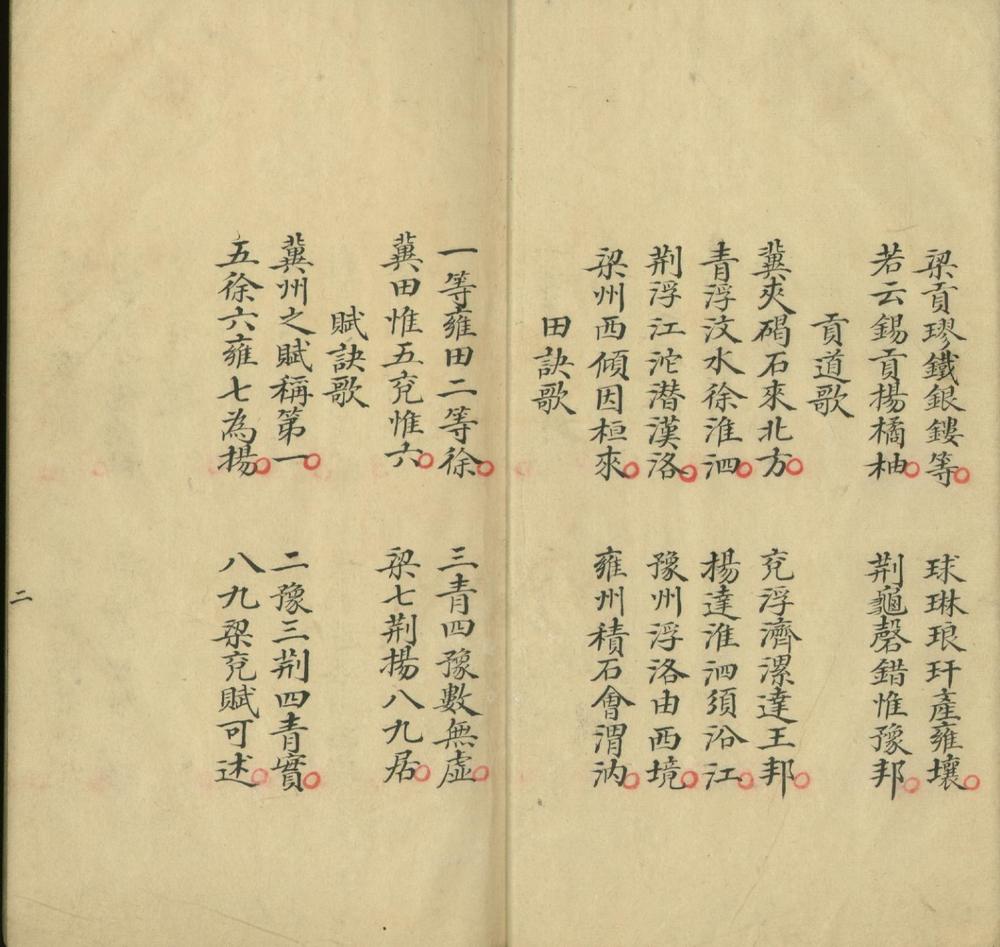 梁貢璆鐵銀鏤等 球琳琅玕產雍壤
若云錫貢揚橘柚 荆龜磬錯惟豫邦
貢道歌
冀夾碣石來北方 兗浮濟漯達王邦
青浮汶水徐淮泗 揚達淮泗須沿江
荆浮江沱潛漢洛 豫州浮洛由西境
梁州西傾因桓來 雍州積石會渭汭
田訣歌
一等雍田二等徐 三青四豫數無虛
冀田惟五兗惟六 梁七荆揚八九居
賦訣歌
冀州之賦稱第一 二豫三荆四青實
五徐六雍七為揚 八九梁兗賦可述
二